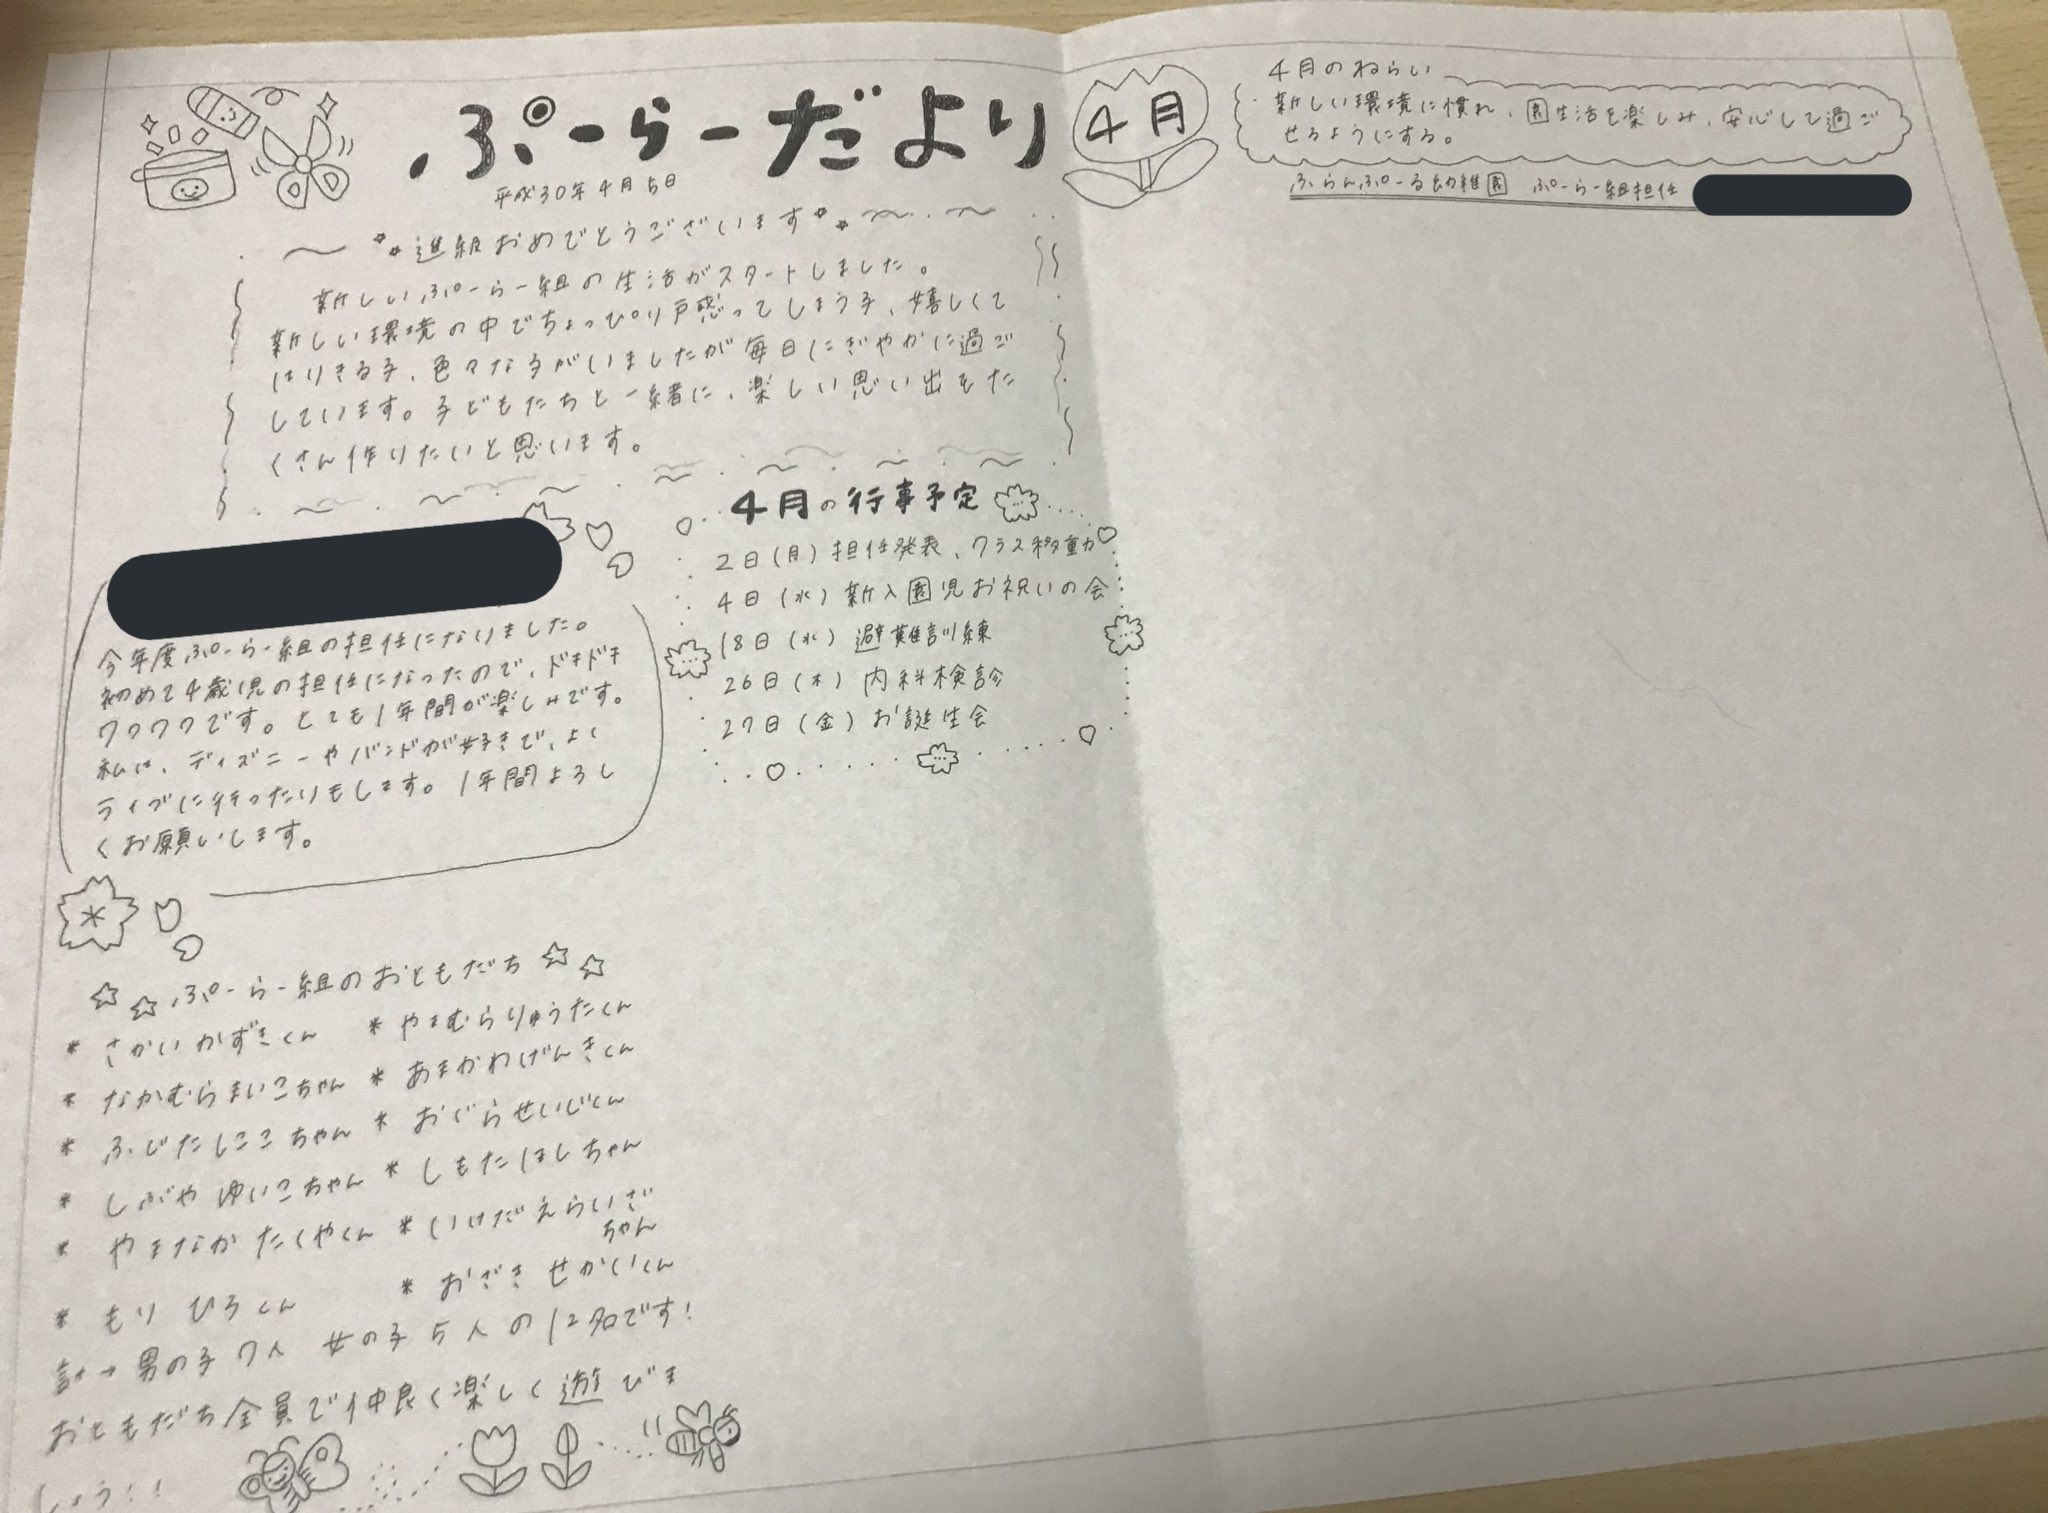 ぷーらーだより
4月
平成30年4月5日
4月のねらい
新しい環境に慣れ、園生活を楽しみ、安心して過ご
せるようにする。
ふらんぷーる幼稚園 ぷーらー組担任
進級おめでとうございます
新しいぷーらー組の生活がスタートしました。
新しい環境の中でちょっぴり戸惑ってしまう子、嬉しくて
はりきる子、色々な子がいましたが毎日にぎやかに過ご
しています。子どもたちと一緒に、楽しい思い出をた
くさん作りたいと思います。
今年度ぷーらー組の担任になりました。
初めて4歳児の担任になったので、ドキドキ
ワクワクです。とても1年間が楽しみです。
私は、ディズニーやバンドが好きで、よく
ライブに行ったりもします。1年間よろし
くお願いします。
4月の行事予定
2日(月)担任発表、クラス移動
4日(水)新入園児お祝いの会
18日(水)避難訓練
26日(木)内科検診
27日(金)お誕生会
☆☆ぷーらー組のおともだち☆☆
* さかい かずきくん * やまむらりゅうたくん
* なかむらまいこちゃん * あまかわげんきくん
* ふじたしここちゃん * おぐらせいじくん
* しぶや ゆいこちゃん * しもたほしちゃん
* やまなか たくやくん * いけだえらいざ
ちゃん
* もり ひろくん * おざき せかいくん
計→男の子7人 女の子5人の12名です!
おともだち全員で仲良く楽しく遊びま
しょう!!